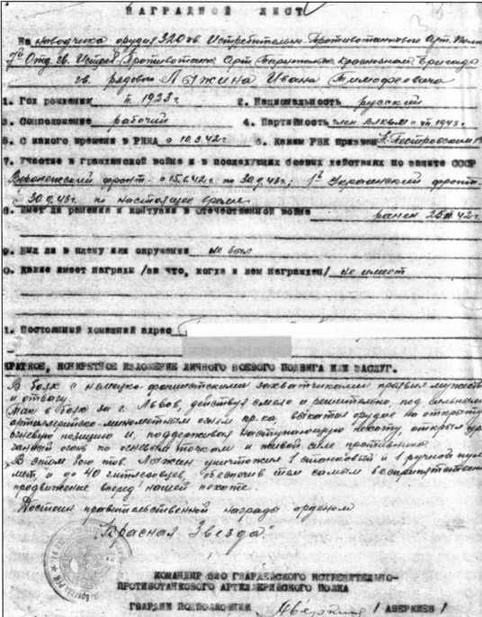 НАГРАДНОЙ ЛИСТ
На наводчика орудия 320 гв. Истребительно-Противотанкового Арт. Полка
7й Отд. гв. Истреб. Противотанк. Арт. Бригады
гв. рядового Ложкина Ивана Тимофеевича
1. Год рождения 1923 г. 2. Национальность русский
3. Соцположение рабочий 4. Партийность член ВЛКСМ с 1943 г.
5. С какого времени в РККА с 10.3.42 г. 6. Каким РВК призван
7. Участие в гражданской войне и в последующих боевых действиях по защите СССР
Воронежский фронт с 15.6.42 г. по 30.9.43 г.; 1й Украинский фронт
с 30.9.43 г. по настоящее время
8. Имеет ли ранения и контузии в отечественной войне ранен 42 г.
9. Был ли в плену или окружении не был
0. Какие имеет награды /за что, когда и кем награжден/ не имеет
1. Постоянный домашний адрес
КРАТКОЕ, КОНКРЕТНОЕ ИЗЛОЖЕНИЕ ЛИЧНОГО БОЕВОГО ПОДВИГА ИЛИ ЗАСЛУГ.
В боях с немецко-фашистскими захватчиками проявил мужество
и отвагу.
Так в бою за г. Львов, действуя смело и решительно, под сильным
артиллерийско-минометным огнем пр-ка, выкатил орудие на открытую
огневую позицию и, поддерживая наступающую пехоту, открыл
огонь по огневым точкам и живой силе противника.
В этом бою тов. Ложкин уничтожил 1 станковый и 1 ручной пуле-
мет, и до 40 гитлеровцев, обеспечив тем самым беспрепятственное
продвижение вперед нашей пехоте.
Достоин правительственной награды орденом
"Красная Звезда"
КОМАНДИР 320 ГВАРДЕЙСКОГО ИСТРЕБИТЕЛЬНО-
ПРОТИВОТАНКОВОГО АРТИЛЛЕРИЙСКОГО ПОЛКА
ГВАРДИИ ПОДПОЛКОВНИК / АВЕРКИЕВ /